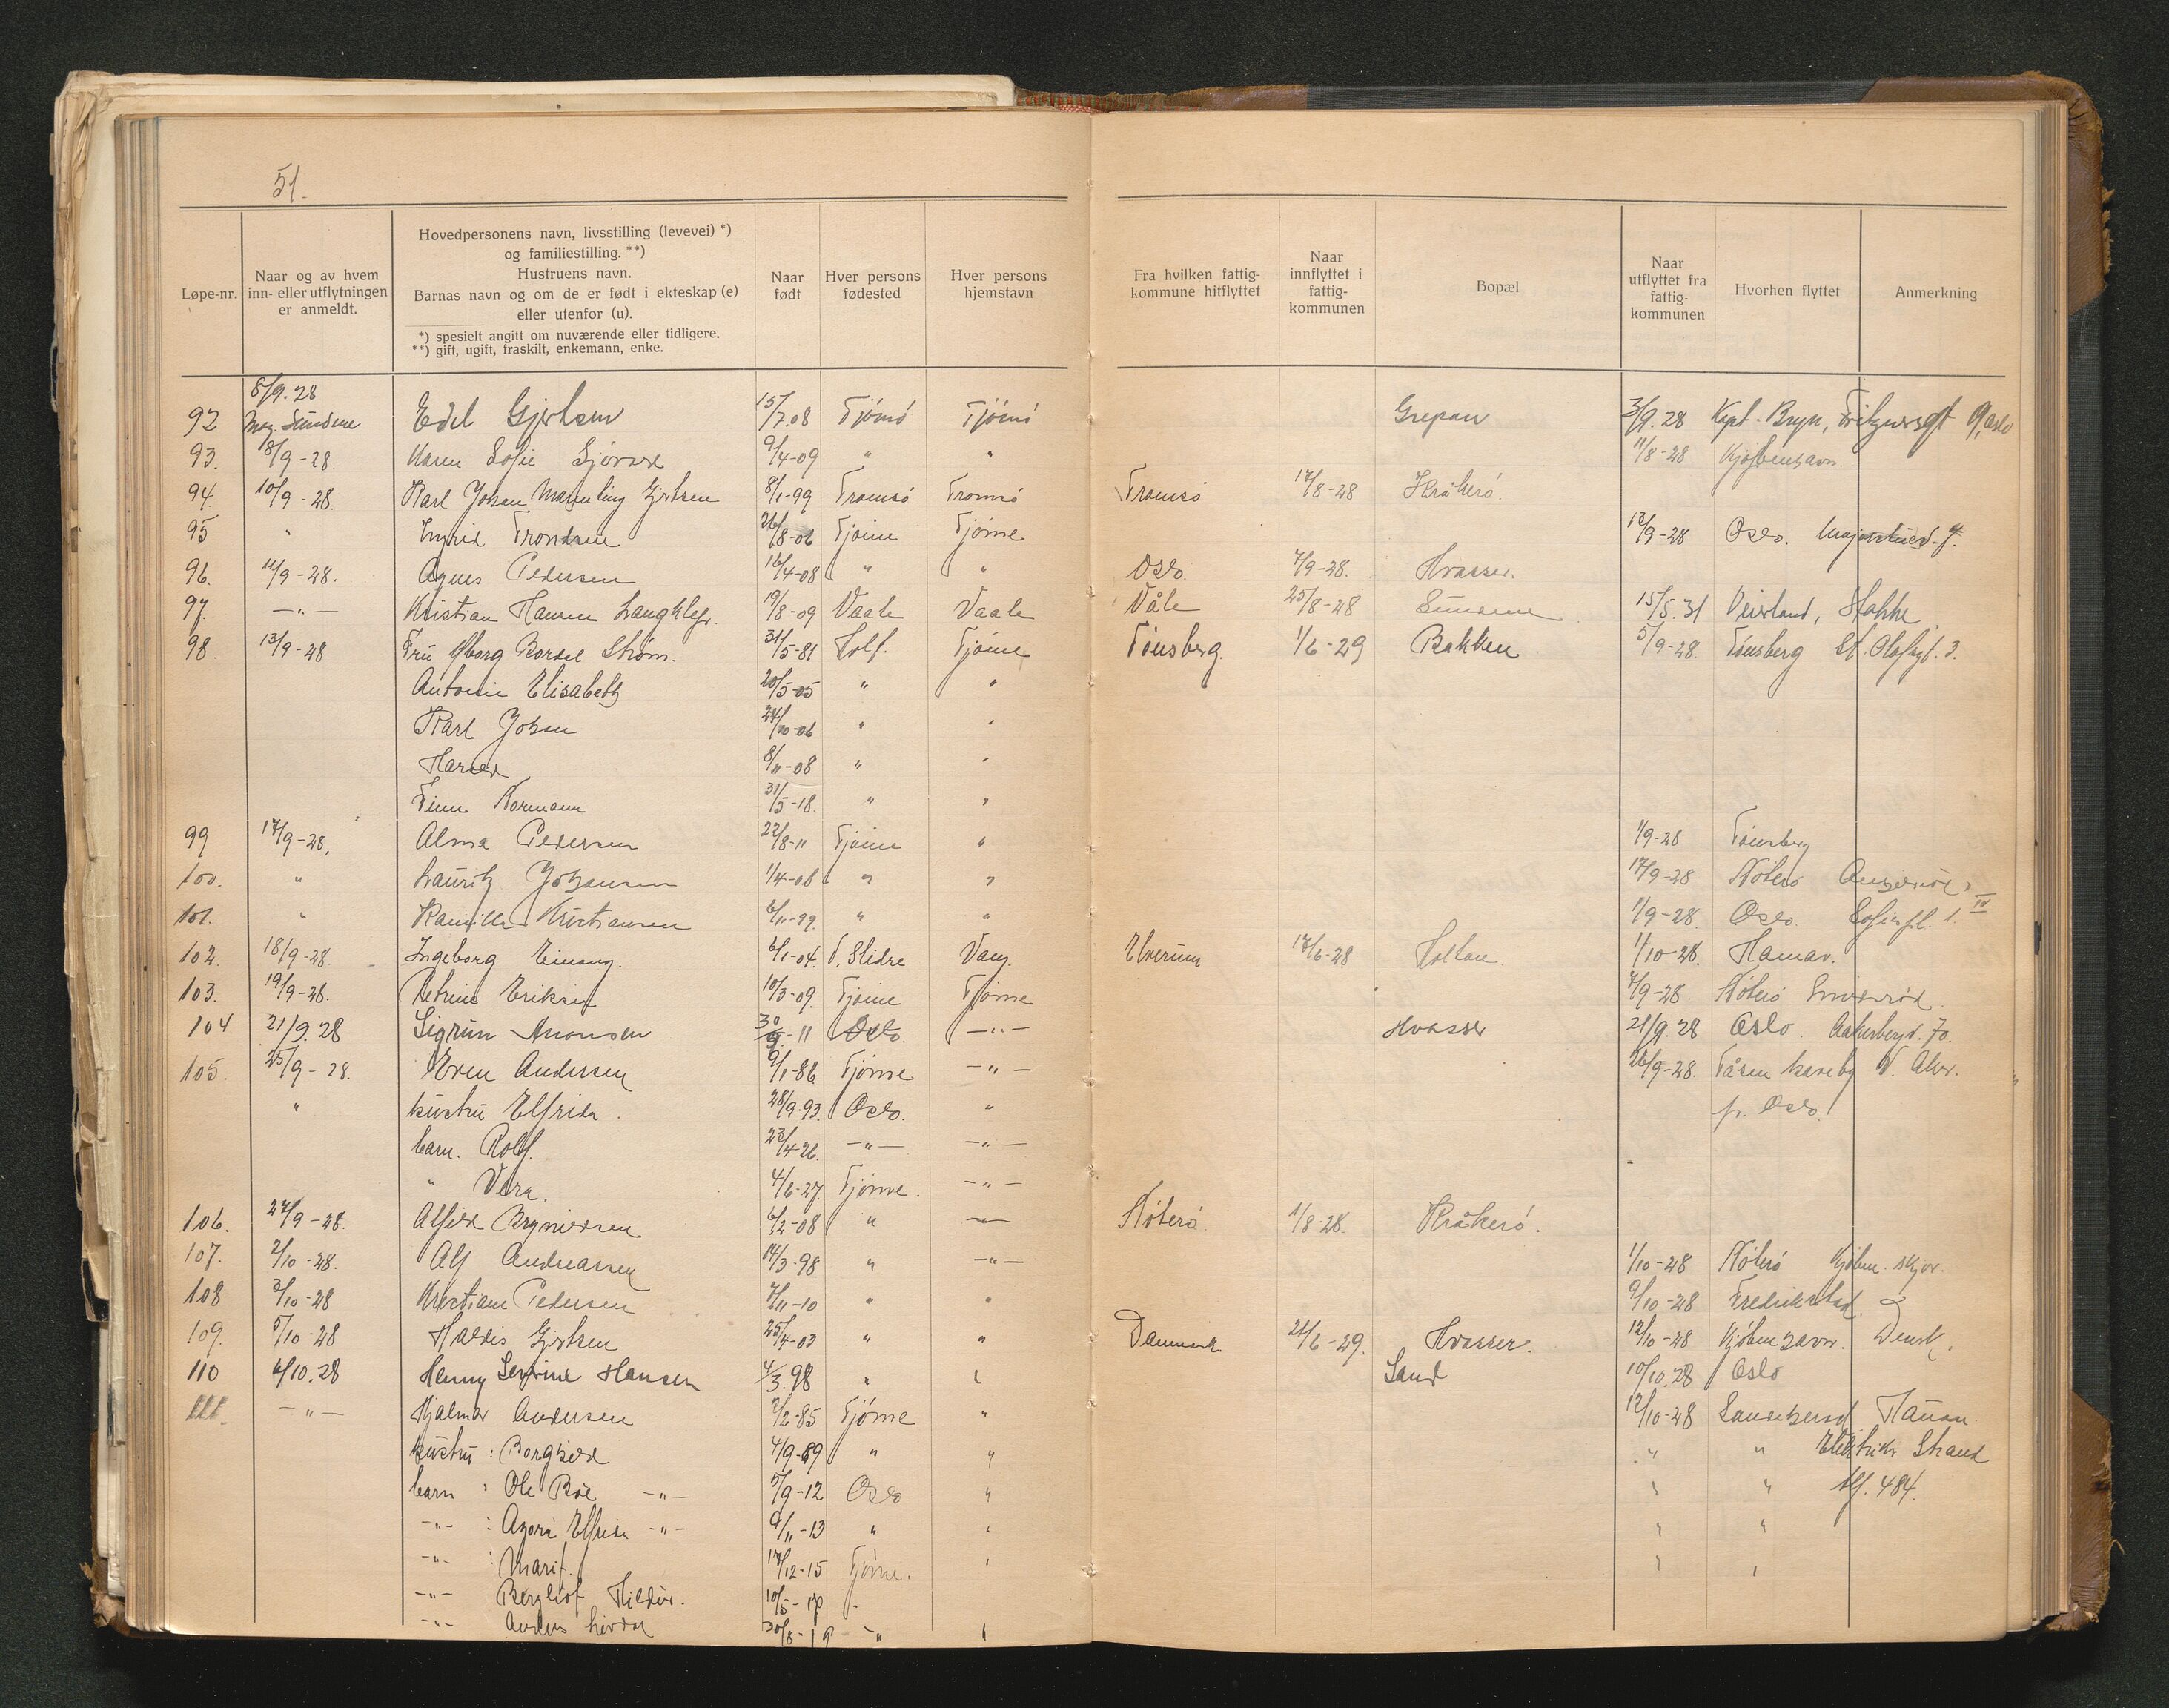 51.
Løpe-nr.
Naar og av hvem
inn- eller utflytningen
er anmeldt.
Hovedpersonens navn, livsstilling (levevei) *)
og familiestilling. **)
Hustruens navn.
Barnas navn og om de er født i ekteskap (e)
eller utenfor (u).
*) spesielt angitt om nuværende eller tidligere.
**) gift, ugift, fraskilt, enkemann, enke.
Naar
født
Hver persons
fødested
Hver persons
hjemstavn
Fra hvilken fattig-
kommune hitflyttet
Naar
innflyttet i
fattig-
kommunen
Bopæl
Naar
utflyttet fra
fattig-
kommunen
Hvorhen flyttet
Anmerkning
8/9.28
92 Edel Gjertsen 15/7.08 Tjömö Tjömö Grepan 3/9.28 Kapt. Bryn, 9, Oslo
93. 18/9-28 Karen Sofie 9/4-09 " " 11/8-28 Kjøbenhavn.
94. 10/9-28. Karl Johan Gjertsen 8/1-99 Tromsö Tromsö Tromsö 17/8-28 Kråkerö.
95 " Ingrid Trondsen 26/8-06 Tjöme Tjöme 12/9-28 Oslo.
96. 11/9-28. Agnes Pedersen 16/4-08 " " Oslo. 7/9-28. Hvasser.
97. —"— Kristian Hansen 19/8-09 Vaale Vaale Våle 25/8-28 15/5.31 Veierland, Stokke
98. 13/9-28 Fru Bordal Strøm. 31/5-81 Holf. Tjöme Tönsberg. 1/6-29 Bakken 5/9-28. Tönsberg St. Olafsgt. 3.
Antonie Elisabeth 20/5-05 " "
Karl Johan 24/10-06 " "
Harald 8/11-08 " "
Finn Normann 31/5-18. " "
99 17/9-28, Alma Pedersen 22/8-11 Tjöme " 1/9-28 Tönsberg
100. " Lauritz Johansen 1/4-08 " " 17/9-28 Nöterö
101. " Kamilla Kristiansen 6/11-99. " " 1/9-28. Oslo. Sofiepl. 1. IV
102. 18/9-28. Ingeborg Einang. 6/1-04. V. Slidre Vang. Elverum 17/6-28 Holtan. 1/10-28. Hamar.
103. 19/9-28. Petrine Eriksen 10/3-09. Tjöme Tjöme 7/9-28 Nöterö
104 21/9.28 Sigrun Amonsen 30/9-11 Oslo. —"— Hvasser 21/9.28 Oslo. Aakerbergv. 70.
105. 25/9-28. Even Andersen 9/1-86. Tjöme —"— 26/9-28. Tåsen haveby V. Aker.
" hustru Elfrida. 28/9.93. Oslo. " p. Oslo
barn. Rolf. 23/4-26. —"— —"—
" Vera. 4/6-27. Tjöme. —"—
106. 27/9-28. Alfild Brynildsen 6/2-08 " — Nöterö. 1/8-28. Kråkerö.
107. 2/10-28. Alf Andreassen 14/3-98 " —"— 1/10-28 Nöterö
108 3/10-28 Kristiane Pedersen 7/11-10 " " 9/10-28 Fredrikstad
109. 5/10-28 Haldis Gjertsen 25/4-03 " " Danmark 21/6-29. Hvasser. 12/10-28 Kjøbenhavn.
110 6/10.28 Henny Severine Hansen 4/3.98 " " Sand 10/10.28 Oslo
111. —"— Hjalmar Andersen 2/2-85 Tjöme " 12/10-28 Sandeherad
hustru: Borghild 4/9-89 " " " " Elektriker Strand
barn : Ole Roe —"— 5/9-12 Oslo " " " tlf. 484.
—"— : Elfrida —"— 9/11-13 " " " "
—"— : Marit. 17/12-15 Tjöme. " " "
—"— Bergliot Hildur. 10/5-17 "
—"— Anders 30/8-19 —"— "